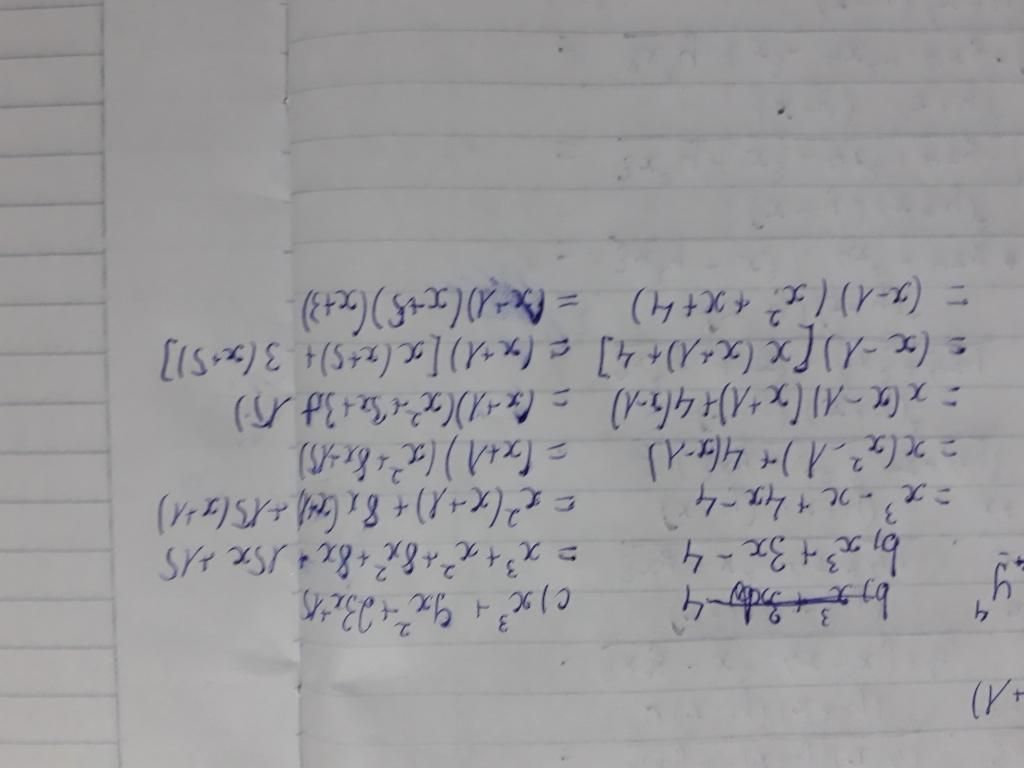 + 1)
y⁴
b, x³ + 3x - 4
= x³ - x + 4x - 4
= x(x² - 1) + 4(x - 1)
= x(x - 1)(x + 1) + 4(x - 1)
= (x - 1)[x(x + 1) + 4]
= (x - 1)(x² + x + 4)
c, x³ + 9x² + 23x + 15
= x³ + x² + 8x² + 8x + 15x + 15
= x²(x + 1) + 8x(x+1) + 15(x + 1)
= (x + 1)(x² + 8x + 15)
= (x + 1)(x² + 5x + 3x + 15)
= (x + 1)[x(x + 5) + 3(x + 5)]
= (x + 1)(x + 5)(x + 3)